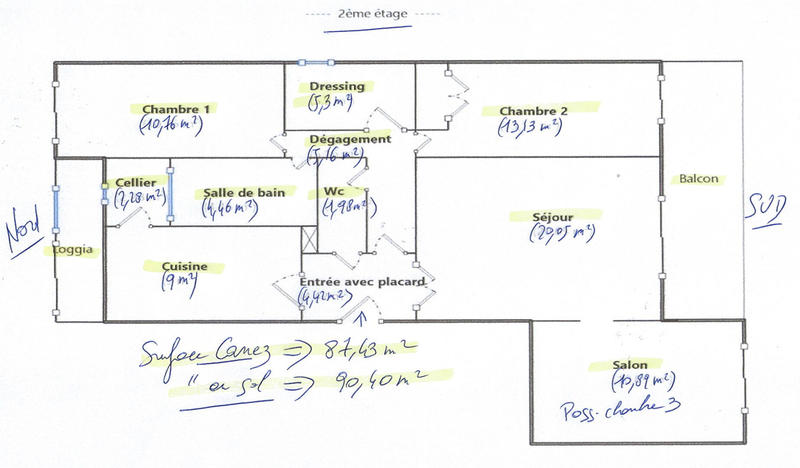 2ème étage
Dressing
(5,3 m²)
Chambre 1
(10,76 m²)
Chambre 2
(13,13 m²)
Dégagement
(5,16 m²)
Cellier
(2,28 m²)
Salle de bain
(4,46 m²)
Wc
(1,98 m²)
Balcon
Nord
SUD
Séjour
(20,05 m²)
Loggia
Cuisine
(9 m²)
Entrée avec placard
(4,42 m²)
Surface Carrez => 87,43 m²
" au sol => 90,40 m²
Salon
(10,89 m²)
Poss. chambre 3